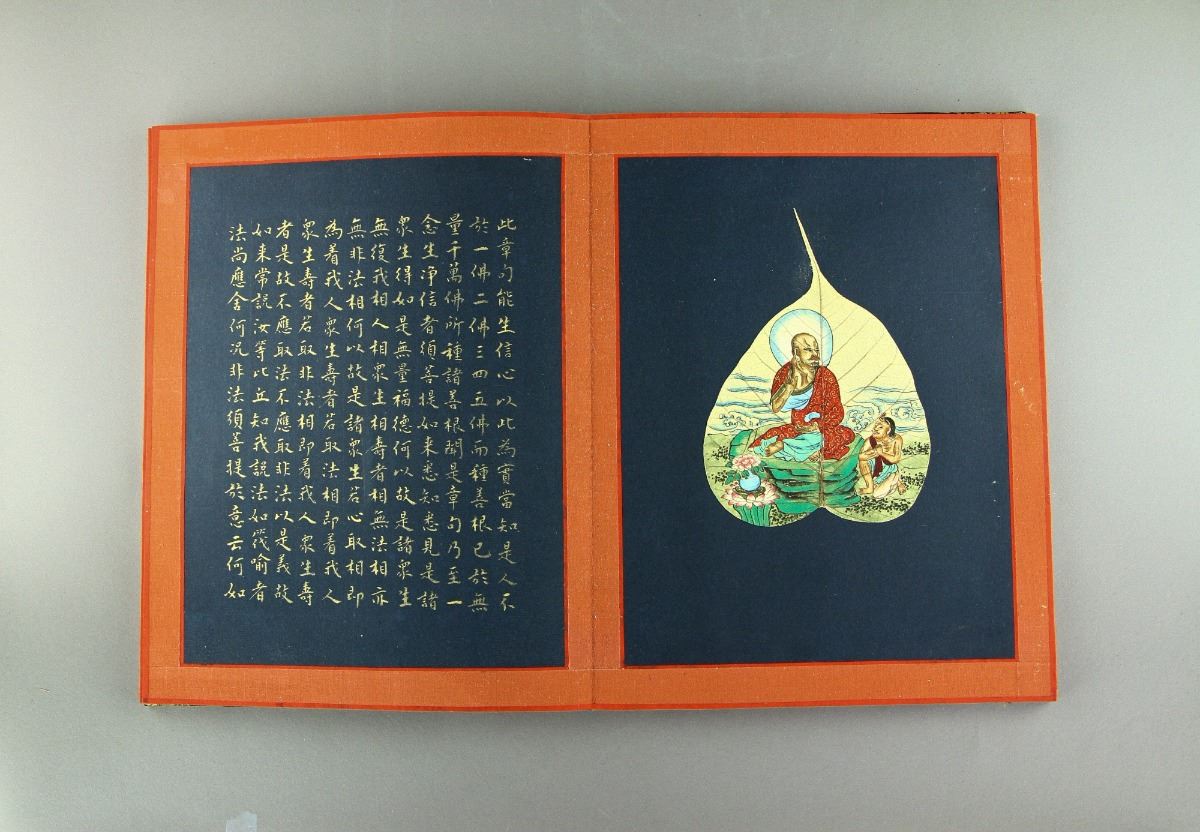 此章句能生信心以此為實當知是人不
於一佛二佛三四五佛而種善根已於無
量千萬佛所種諸善根聞是章句乃至一
念生净信者須菩提如来悉知悉見是諸
衆生得如是無量福德何以故是諸衆生
無復我相人相衆生相壽者相無法相亦
無非法相何以故是諸衆生若心取相即
為着我人衆生壽者若取法相即着我人
衆生壽者若取非法相即着我人衆生壽
者是故不應取法不應取非法以是義故
如来常説汝等比丘知我説法如筏喻者
法尚應舍何況非法須菩提於意云何如